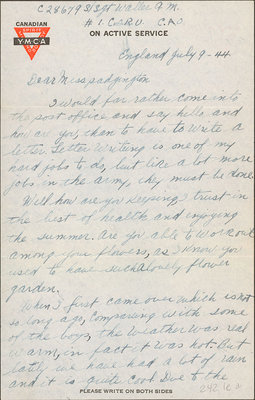 C28679 S/Sgt Waller G.M.
CANADIAN
#1. C.G.R.U. C.A.O.
SPIRIT MIND BODY
YMCA
ON ACTIVE SERVICE
England July 9-44
Dear Miss padgington
I would far rather come into
the post office and say hello and
how are you, than to have to write a
letter. Letter writing is one of my
hard jobs to do, but like a lot more
jobs in the army they must be done.
Well how are you keeping, I trust in
the best of health and enjoying
the summer. Are you able to work out
among your flowers, as I know you
used to have such lovely flower
garden.
When I first came over which is not
so long ago, comparing with some
of the boys, the weather was real
warm, in fact it was hot. But
lately we have had a lot of rain
and it is quite cool. Due to the
PLEASE WRITE ON BOTH SIDES